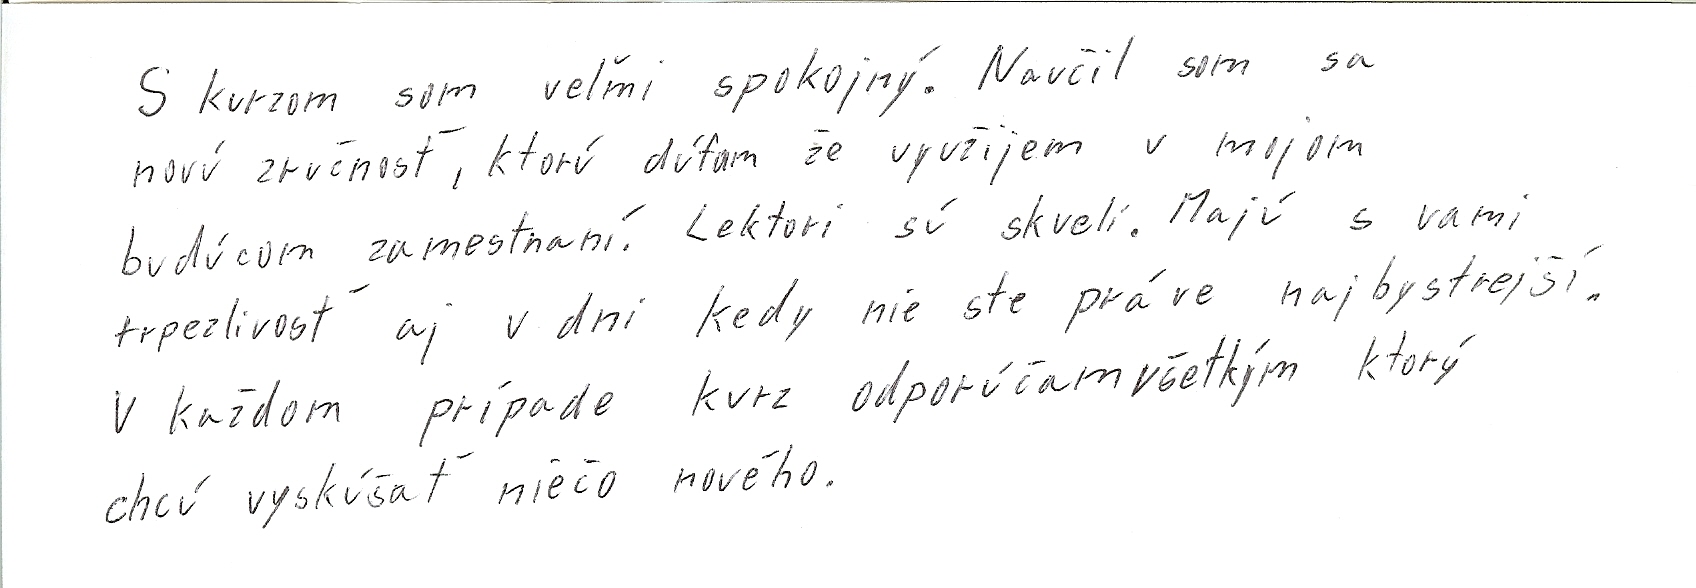 S kurzom som veľmi spokojný. Naučil som sa
novú zručnosť, ktorú dúfam že využijem v mojom
budúcom zamestnaní. Lektori sú skvelí. Majú s vami
trpezlivosť aj v dni kedy nie ste práve najbystrejší.
V každom prípade kurz odporúčam všetkým ktorý
chcú vyskúšať niečo nového.